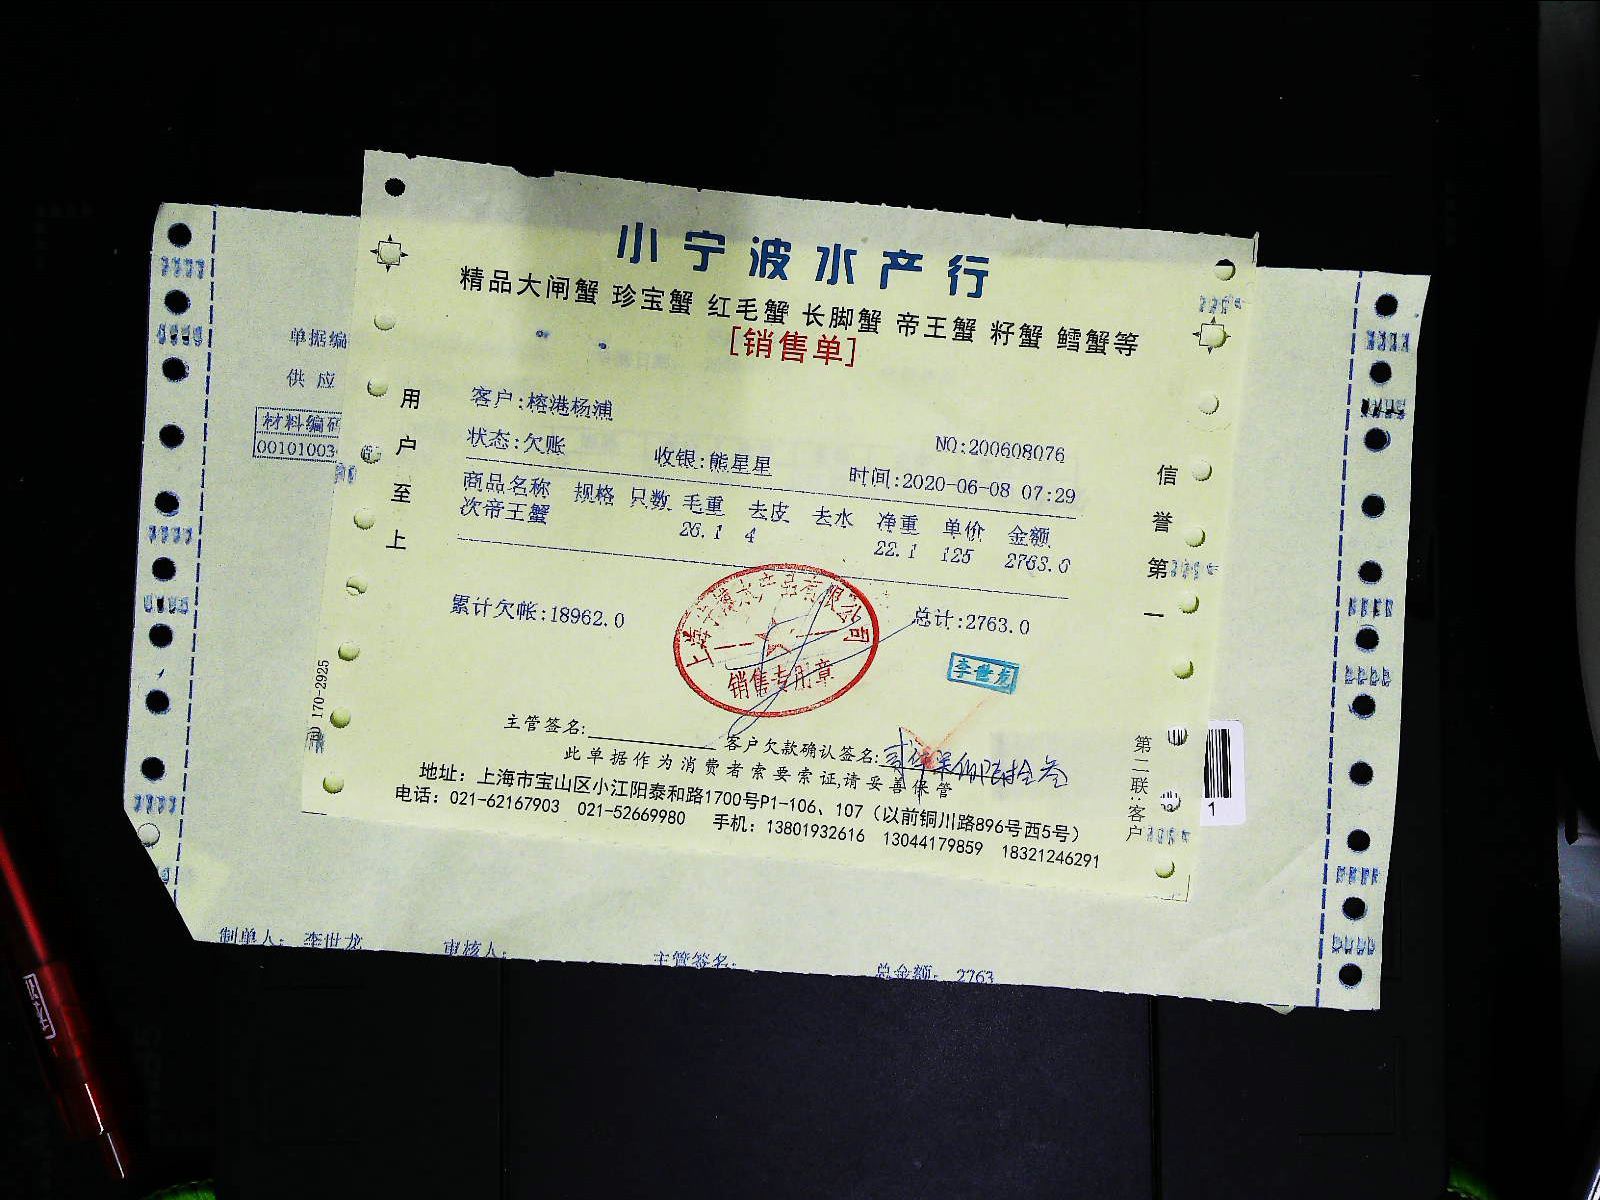 小宁波水产行
精品大闸蟹 珍宝蟹 红毛蟹 长脚蟹 帝王蟹 籽蟹 鳕蟹等
[销售单]
单据编
供应
材料编码
00101003
用户至上
信誉第一
客户:榕港杨浦
NO:200608076
状态:欠账 收银:熊星星 时间:2020-06-08 07:29
商品名称 规格 只数 毛重 去皮 去水 净重 单价 金额
次帝王蟹 26.1 4 22.1 125 2763.0
累计欠帐:18962.0 总计:2763.0
上海宁波水产品有限公司
销售专用章
李世龙
主管签名: 客户欠款确认签名:
此单据作为消费者索要索证,请妥善保管
地址：上海市宝山区小江阳泰和路1700号P1-106、107（以前铜川路896号西5号）
电话：021-62167903 021-52669980 手机：13801932616 13044179859 18321246291
170-2925
第二联:客户
1
制单人: 李世龙 审核人: 主管签名: 总金额: 2763